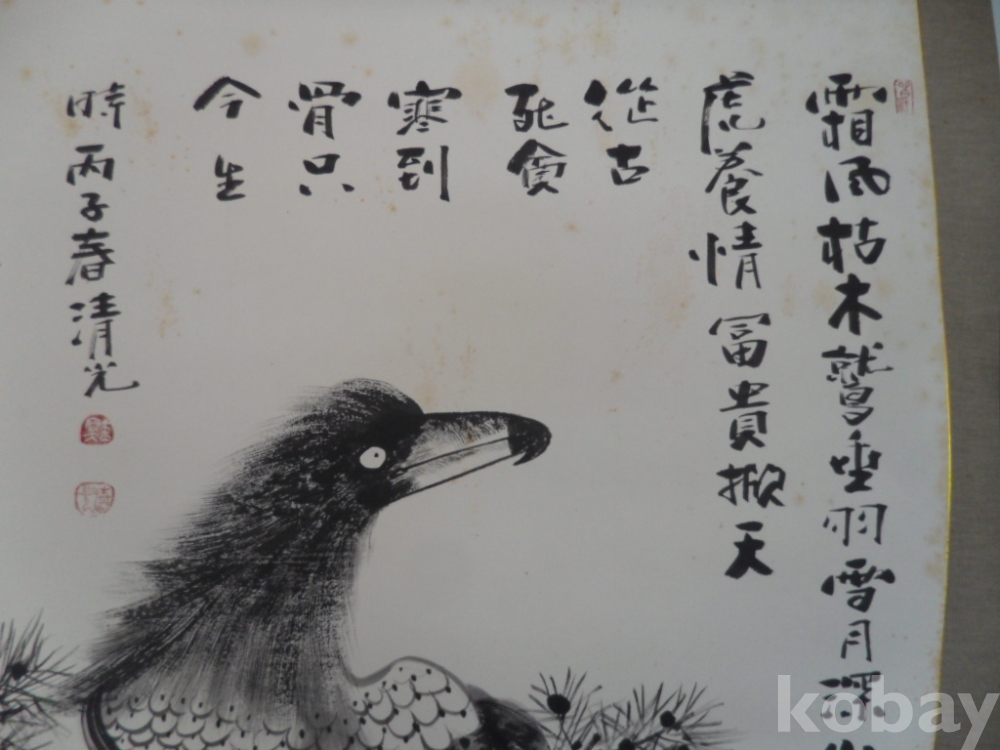 霜風枯木鷲垂羽雪月深
虎養情冨貴掀天
從古
死貧
寒到
骨只
今生
時丙子春清光
kobay